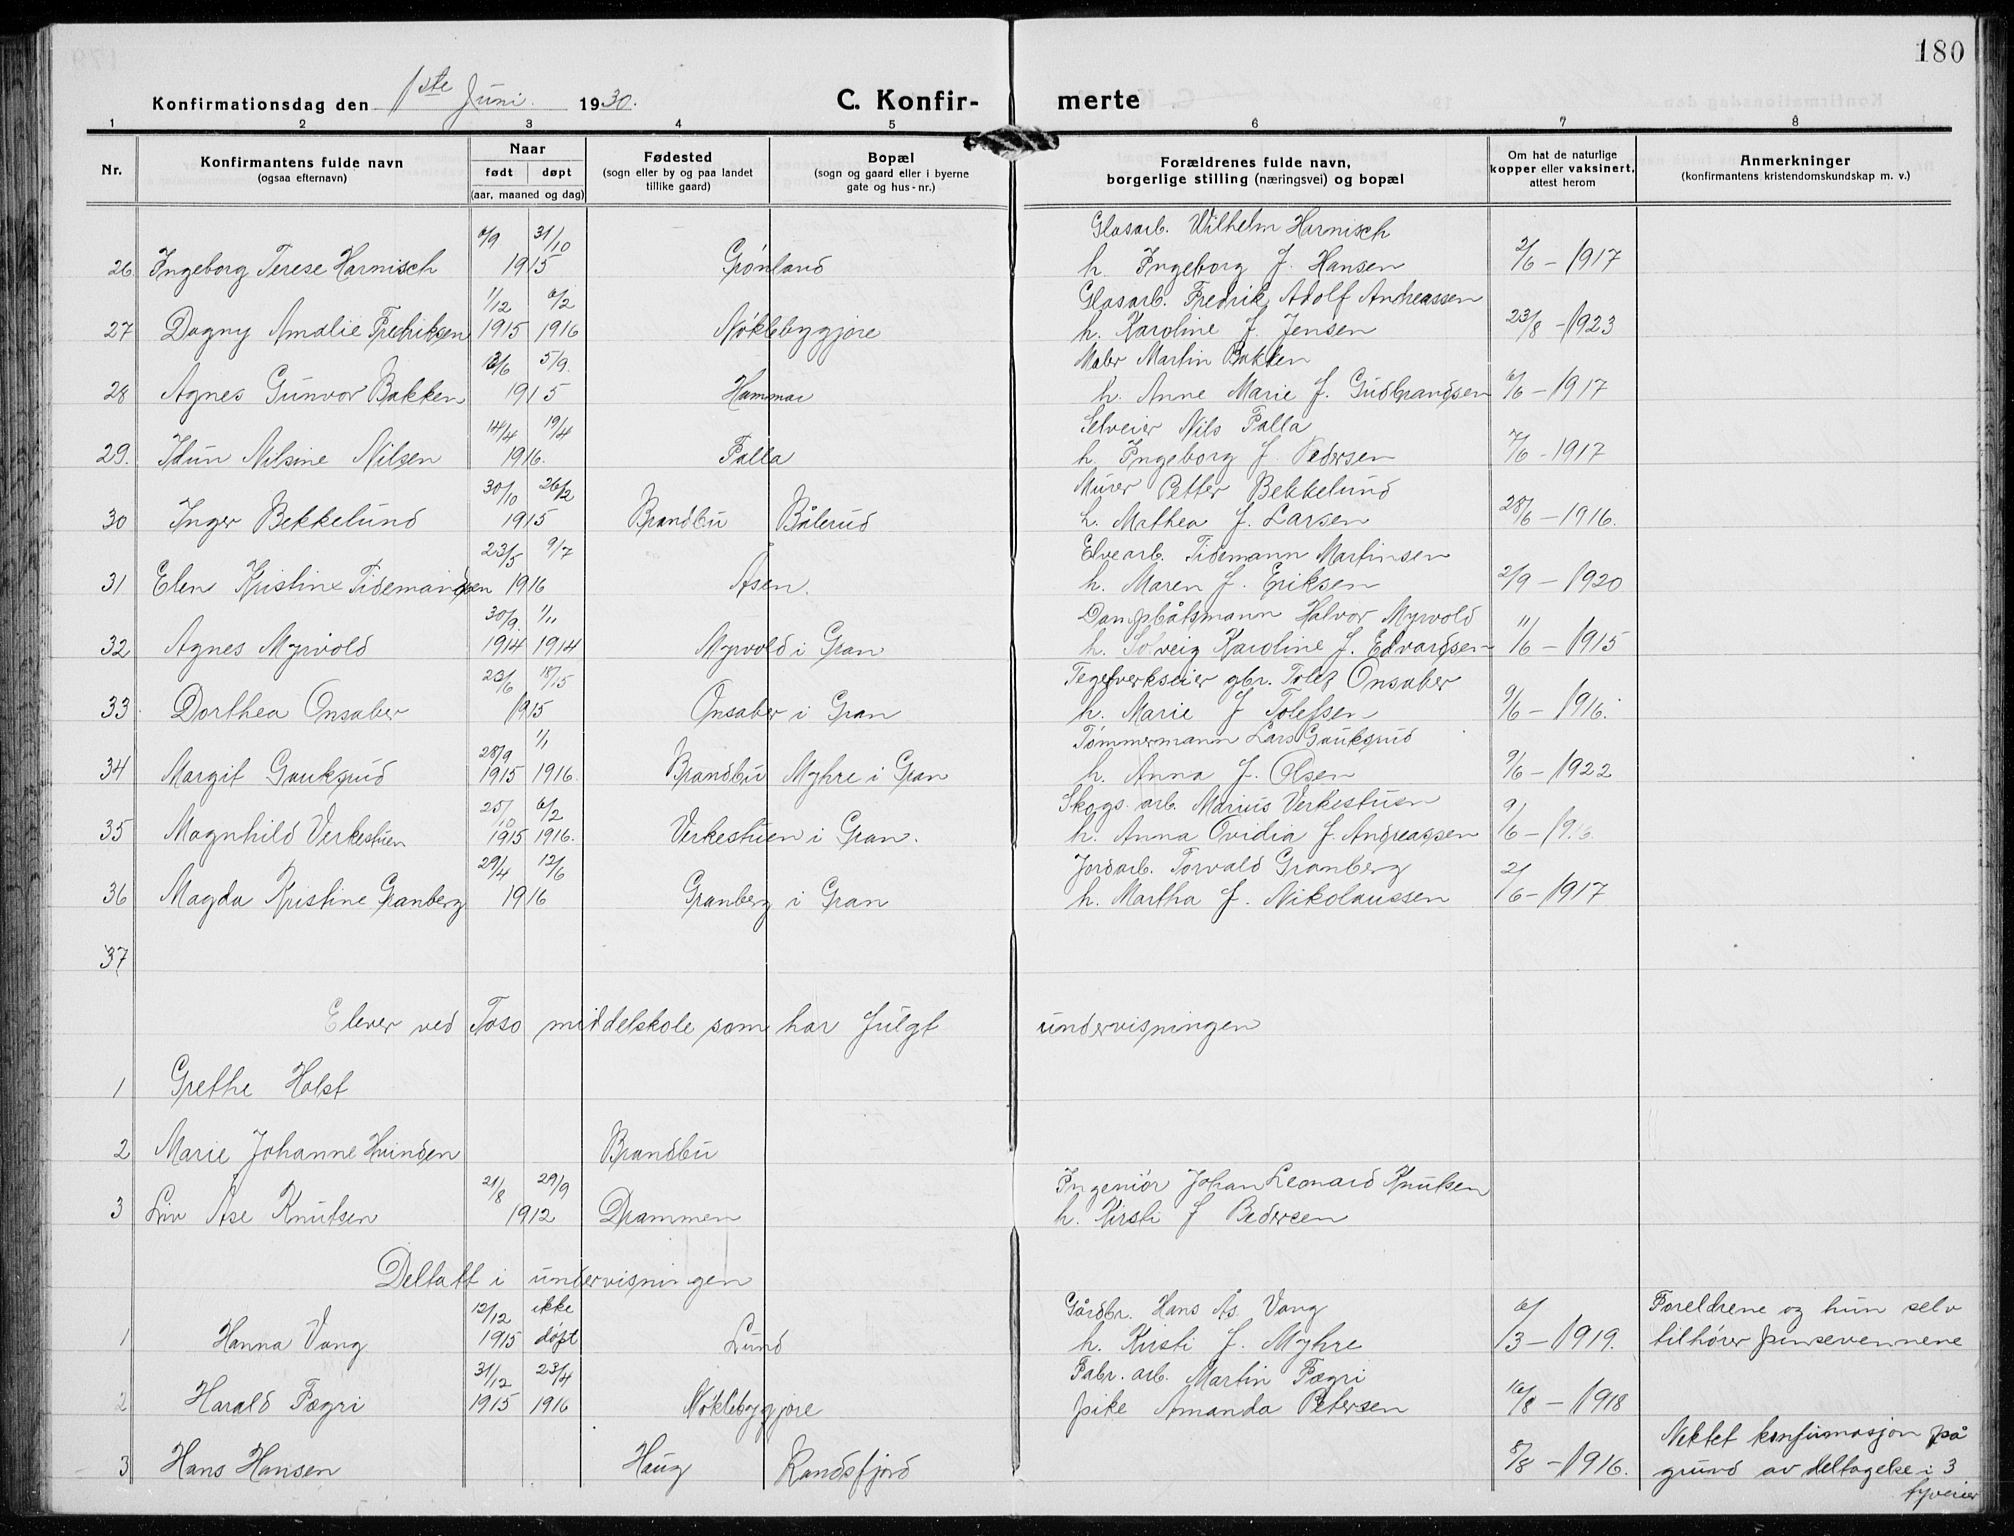 180
Konfirmationsdag den 1ste Juni 1930. C. Konfir- merte
1 2 3 4 5 6 7 8
Nr. Konfirmantens fulde navn (ogsaa efternavn) Naar født døpt (aar, maaned og dag) Fødested (sogn eller by og paa landet tillike gaard) Bopæl (sogn og gaard eller i byerne gate og hus-nr.) Forældrenes fulde navn, borgerlige stilling (næringsvei) og bopæl Om hat de naturlige kopper eller vaksinert, attest herom Anmerkninger (konfirmantens kristendomskundskap m. v.)
6/9 31/10 Glasarb. Wilhelm Harnisch
26 Ingeborg Terese Harnisch 1915 Grønland h. Ingeborg f. Hansen 2/6 - 1917
1/12 6/2 Glasarb. Fredrik Adolf Andreassen
27 Dagny Amalie Fredriksen 1915 1916 Nøklebygjøre h. Karoline f. Jensen 23/8 - 1923
5/9. Maler Martin Bakken
28 Agnes Gunvor Bakken 1915 Hammar h. Anne Marie f. Gudbrandsen 6/6 - 1917
14/4 19/4 Selveier Nils Falla
29. Idun Nilsine Nilsen 1916. Falla h. Ingeborg f. Pedersen 7/6 - 1917
30/10 26/2 Murer Petter Bekkelund
30 Inger Bekkelund 1915 Brandbu Bålerud h. Mathea f. Larsen 28/6 - 1916.
23/5 9/7 Elvearb. Tidemann Martinsen
31 Elen Kristine Tidemandsen 1916 Åsen. h. Maren f. Eriksen 2/9 - 1920
30/9. 1/11 Dampbåtsmann Halvor Myrvold
32 Agnes Myrvold 1914 1914 Myrvold i Gran h. Solveig Karoline f. Edvardsen 11/6 - 1915
23/6 18/15 Teglverkseier gbr. Tolef Onsaker
33. Dorthea Onsaker 1915 Onsaker i Gran h. Marie f Tolefsen 9/6 - 1916.
28/9 1/1 Tømmermann Lars Gauksrud
34 Margit Gauksrud 1915 1916. Brandbu Myhre i Gran h. Anna f. Olsen 9/6 - 1922
25/10 6/2 Skogs. arb. Marius Verkestuen
35 Magnhild Verkestuen 1915 1916. Verkestuen i Gran. h. Anna Ovidia f. Andreassen 9/6 - 1916.
29/4 12/6 Jordarb. Torvald Granberg
36 Magda Kristine Granberg 1916 Granberg i Gran h. Martha f. Nikolaussen 2/6 - 1917
37
Elever ved Toso middelskole som har fulgt undervisningen
1 Grethe Holst
2 Marie Johanne Hvinden Brandbu
21/8 29/9 Ingeniør Johan Leonard Knutsen
3 Liv Åse Knutsen 1912 Drammen h. Kirsti f Pedersen
Deltatt i undervisningen
12/12 ikke Gårdbr. Hans As. Vang 6/ Foreldrene og hun selv
1 Hanna Vang 1915 døpt Lund h. Kirsti f. Myhre /3 - 1919. tilhører pinsevennene
31/12 23/4 Fabr. arb. Martin Fægri
2 Harald Fægri 1915 1916 Nøklebygjøre pike Amanda Petersen 16/8 - 1918
Nektet konfirmasjon på
3 Hans Hansen Haug Randsfjord 8/8 - 1916. grund av deltagelse i 3
tyverier